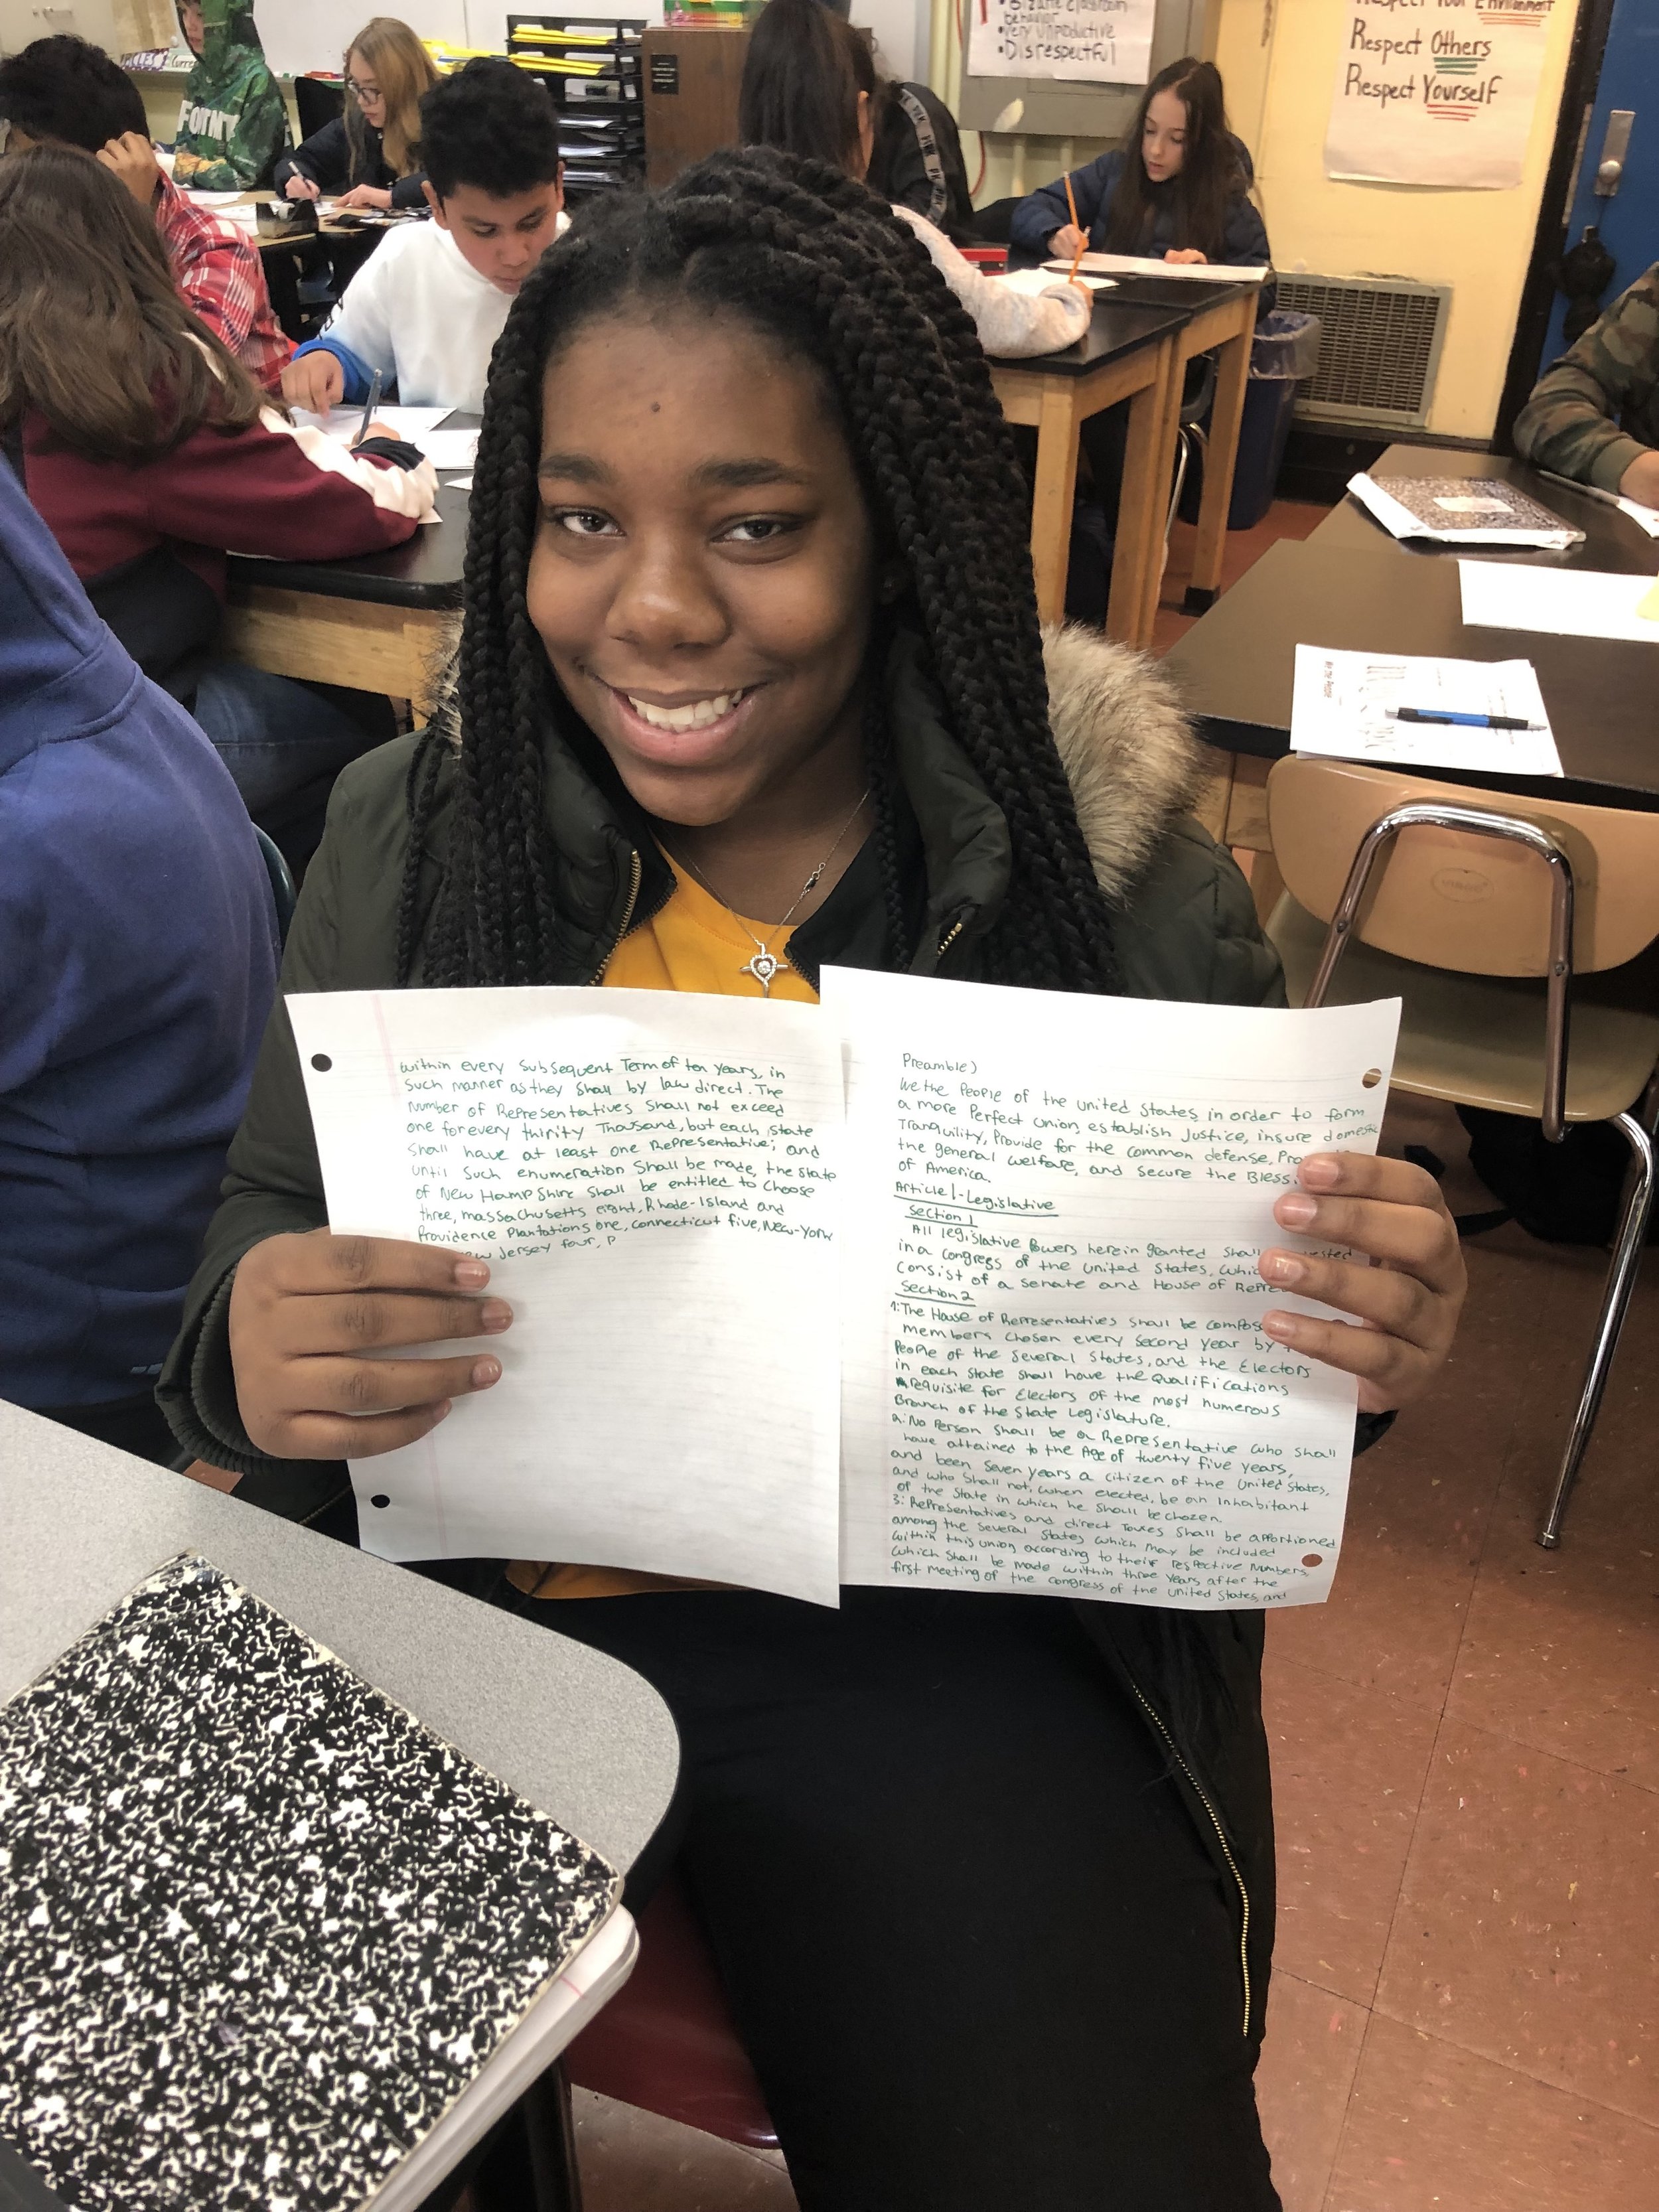 Bizarre classroom
behavior
• Very unproductive
• Disrespectful
Respect Your Environment
Respect Others
Respect Yourself
FORTN
PINK PINK
We the People
within every Subsequent Term of ten years, in
such manner as they Shall by law direct. The
Number of Representatives Shall not exceed
one for every thirity Thousand, but each state
shall have at least one Representative; and
until such enumeration Shall be made, the State
of New HampShire Shall be entitled to Choose
three, massachusetts eight, Rhode-Island and
Providence Plantations one, Connecticut five, New-York
ew Jersey four, P
Preamble)
We the People of the United States, in order to form
a more Perfect Union, establish Justice, insure domestic
Tranquility, Provide for the common defense, Pro
the general welfare, and secure the Bless
of America.
Article 1-Legislative
Section 1
All legislative Powers herein granted Shall vested
in a congress of the United States, whic
consist of a Senate and House of Repre
Section 2
1: The House of Representatives Shall be compos
members chosen every second year by
People of the Several States, and the Electors
in each State Shall have the Qualifications
requisite for Electors of the most numerous
Branch of the State Legislature.
2: No Person Shall be a Representative who shall
have attained to the Age of twenty five years,
and been Seven years a citizen of the United States,
and who Shall not, when elected, be an Inhabitant
of the State in which he Shall be chozen.
3: Representatives and direct Taxes Shall be apportioned
among the several States which may be included
within this union according to their respective Numbers,
which Shall be made within three years after the
first meeting of the congress of the United States, and